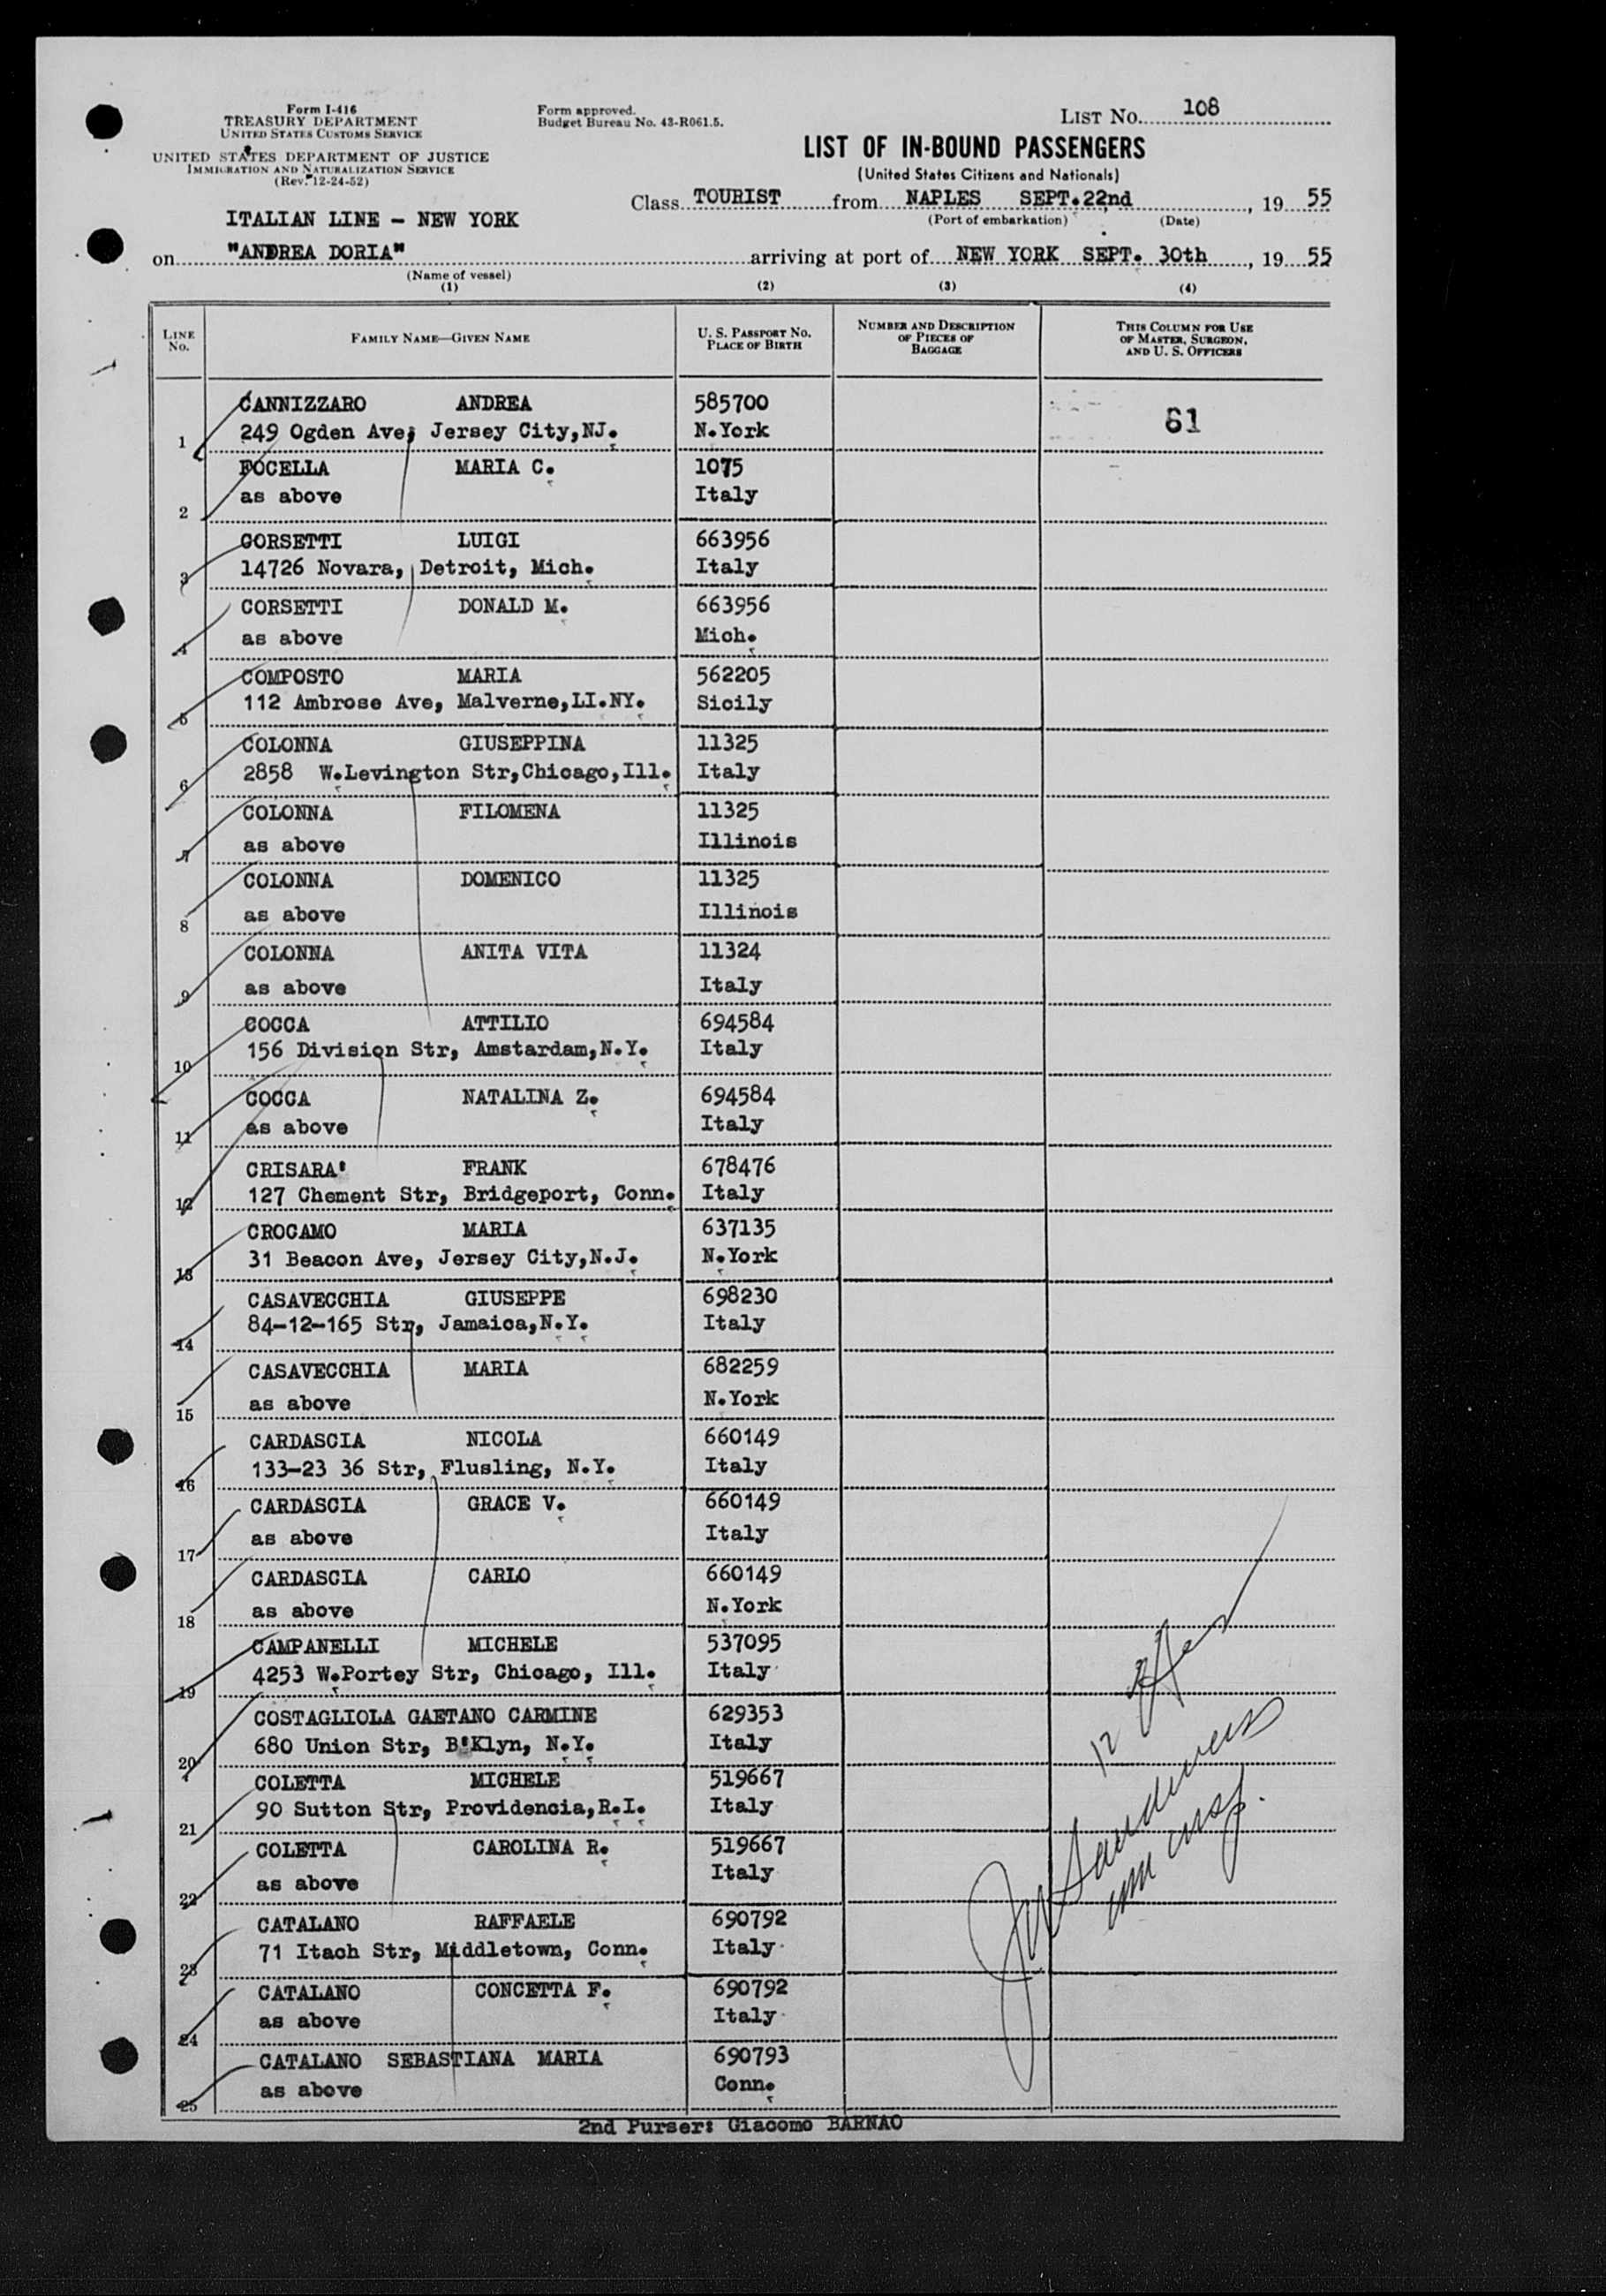 Form I-416
TREASURY DEPARTMENT
UNITED STATES CUSTOMS SERVICE
UNITED STATES DEPARTMENT OF JUSTICE
IMMIGRATION AND NATURALIZATION SERVICE
(Rev. 12-24-52)
Form approved.
Budget Bureau No. 43-R061.5.
LIST NO. 108
LIST OF IN-BOUND PASSENGERS
(United States Citizens and Nationals)
Class TOURIST from NAPLES SEPT.22nd, 19 55
(Port of embarkation) (Date)
ITALIAN LINE - NEW YORK
on "ANDREA DORIA" arriving at port of NEW YORK SEPT. 30th, 19 55
(Name of vessel)
(1) (2) (3) (4)
LINE NO. FAMILY NAME—GIVEN NAME U. S. PASSPORT NO. PLACE OF BIRTH NUMBER AND DESCRIPTION OF PIECES OF BAGGAGE THIS COLUMN FOR USE OF MASTER, SURGEON, AND U. S. OFFICERS
CANNIZZARO ANDREA 585700 61
1 249 Ogden Ave, Jersey City,NJ. N.York
FOCELLA MARIA C. 1075
as above Italy
2
CORSETTI LUIGI 663956
3 14726 Novara, Detroit, Mich. Italy
CORSETTI DONALD M. 663956
4 as above Mich.
COMPOSTO MARIA 562205
5 112 Ambrose Ave, Malverne,LI.NY. Sicily
COLONNA GIUSEPPINA 11325
6 2858 W.Levington Str,Chicago,Ill. Italy
COLONNA FILOMENA 11325
7 as above Illinois
COLONNA DOMENICO 11325
8 as above Illinois
COLONNA ANITA VITA 11324
9 as above Italy
COCCA ATTILIO 694584
10 156 Division Str, Amstardam,N.Y. Italy
COCCA NATALINA Z. 694584
11 as above Italy
CRISARA' FRANK 678476
12 127 Chement Str, Bridgeport, Conn. Italy
CROCAMO MARIA 637135
13 31 Beacon Ave, Jersey City,N.J. N.York
CASAVECCHIA GIUSEPPE 698230
14 84-12-165 Str, Jamaica,N.Y. Italy
CASAVECCHIA MARIA 682259
15 as above N.York
CARDASCIA NICOLA 660149
16 133-23 36 Str, Flusling, N.Y. Italy
CARDASCIA GRACE V. 660149
17 as above Italy
CARDASCIA CARLO 660149
18 as above N.York
CAMPANELLI MICHELE 537095
19 4253 W.Portey Str, Chicago, Ill. Italy
COSTAGLIOLA GAETANO CARMINE 629353
20 680 Union Str, B'Klyn, N.Y. Italy
COLETTA MICHELE 519667
21 90 Sutton Str, Providencia,R.I. Italy
COLETTA CAROLINA R. 519667
22 as above Italy
CATALANO RAFFAELE 690792
23 71 Itach Str, Middletown, Conn. Italy
CATALANO CONCETTA F. 690792
24 as above Italy
CATALANO SEBASTIANA MARIA 690793
25 as above Conn.
2nd Purser: Giacomo BARNAO